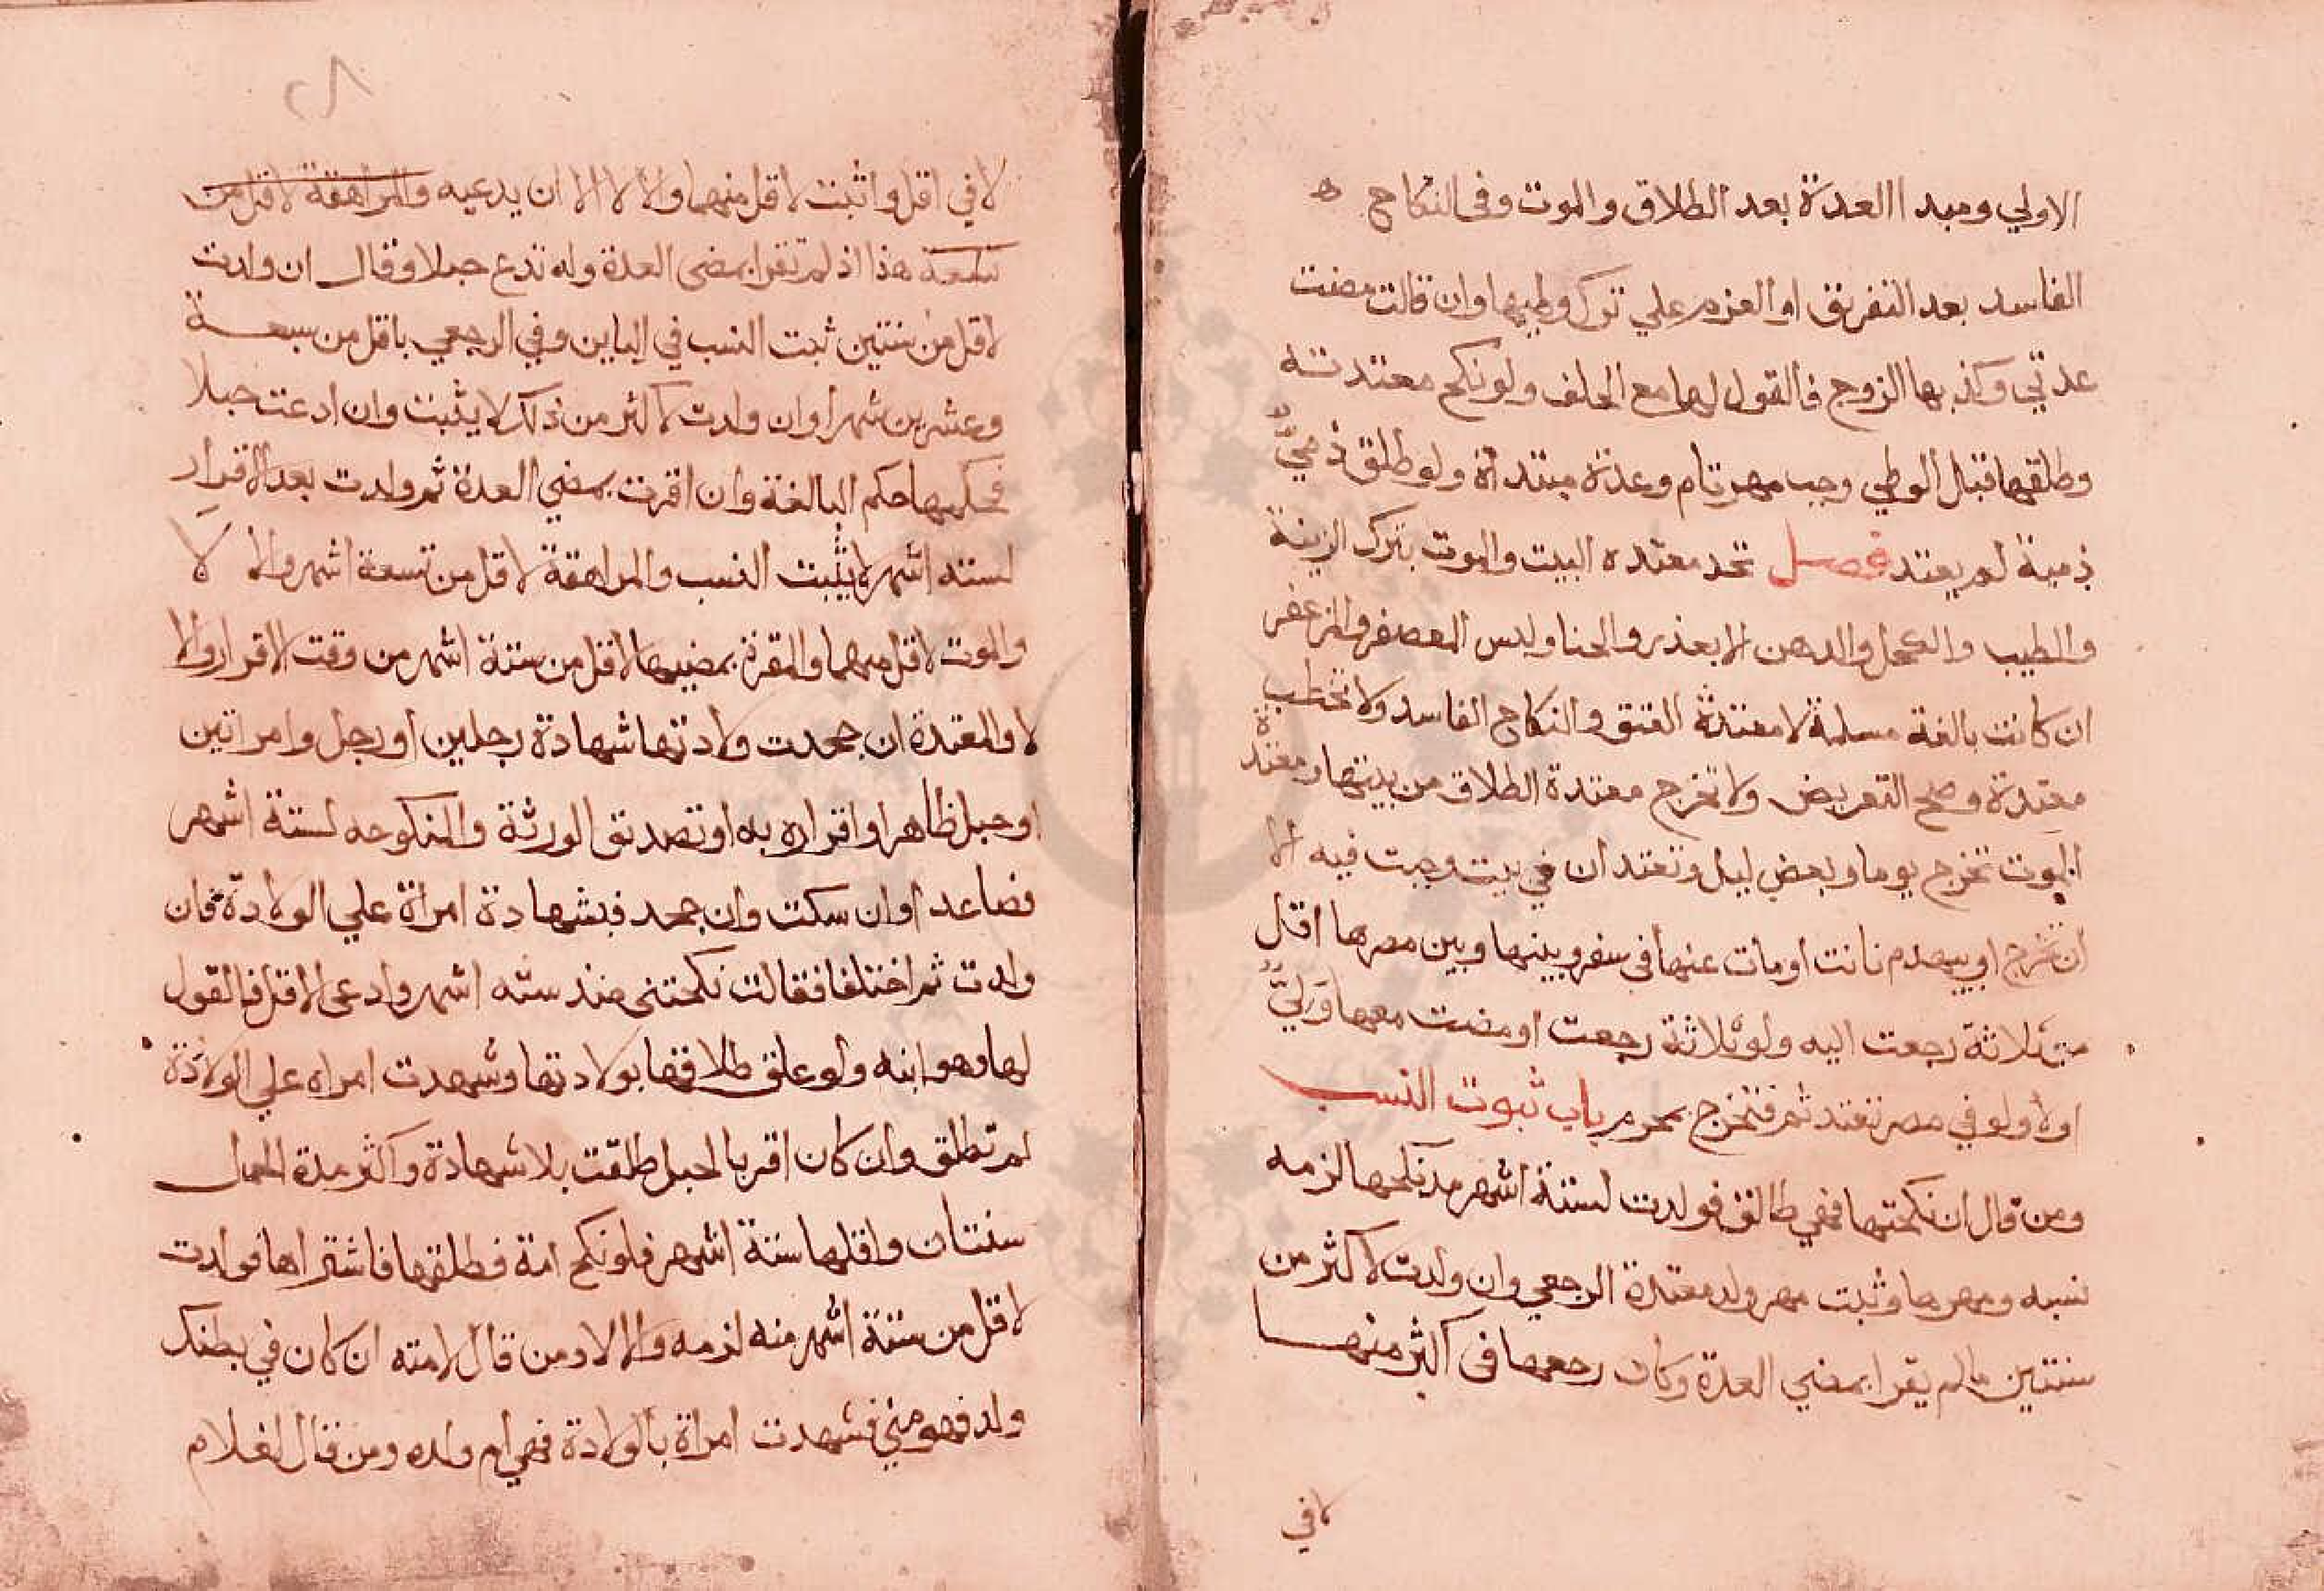 الاولي ومبدا العدة بعد الطلاق والموت وفى النكاح ه
الفاسد بعد التفريق او العزم علي ترك وطيها وان قالت مضت
عدتي وكذبها الزوج فالقول لها مع الحلف ولو نكح معتدته
وطلقها قبل الوطي وجب مهر تام وعدة مبتدأة ولو طلق ذمي
ذمية لم يعتد فصل تحد معتده البت والموت بترك الزينة
والطيب والكحل والدهن الا بعذر والحنا ولبس المعصفر والمزعفر
ان كانت بالغة مسلمة لا معتدة العتق والنكاح الفاسد ولا تخطب
معتدة وصح التعريض ولا تخرج معتدة الطلاق من بيتها ومعتدة
الموت تخرج يوما وبعض ليل وتعتدان في بيت وجبت فيه الا
ان تخرج او ينهدم بانت او مات عنها فى سفر وبينها وبين مصرها اقل
من ثلاثة رجعت اليه ولو ثلاثة رجعت او مضت معها ولي
اولا ولو في مصر تعتد ثم فتخرج بمحرم باب ثبوت النسب
ومن قال ان نكحتها فهي طالق فولدت لستة اشهر مذ نكحها لزمه
نسبه ومهرها وثبت مهر ولد معتدة الرجعي وان ولدت لاكثر من
سنتين مالم يقرا بمضي العدة وكان رجعها فى اكثر منهـا
لا في
لا في اقل واثبت لاقل منهما والا لا الا ان يدعيه والمراهقة لاقل من
تسعة هذا اذ لم تقرا بمضى العدة وله تدع حبلا وقال ان ولدت
لاقل من سنتين ثبت النسب في الباين وفي الرجعي باقل من سبعة
وعشرين شهرا وان ولدت لاكثر من ذلك لا يثبت وان ادعت حبلا
فحكمها حكم البالغة وان اقرت بمضي العدة ثم ولدت بعد الاقرار
لسته اشهر لا يثبت النسب والمراهقة لاقل من تسعة اشهر والا لا
والموت لاقل منهما والمقرة بمضيها لاقل من ستة اشهر من وقت الاقرار والا
لا والمعتدة ان جحدت ولادتها شهادة رجلين او رجل وامراتين
او حبل ظاهر او اقراره به او تصديق الورثة والمنكوحه لستة اشهر
فصاعدا وان سكت وان جحد فبشهادة امراة علي الولادة فان
ولدت ثم اختلفا فقالت نكحتنى منذ سته اشهر وادعى الاقل فالقول
لها وهو ابنه ولو علق طلاقها بولادتها وشهدت امراه علي الولادة
لم تطلق وان كان اقر بالحبل طلقت بلا شهادة واكثر مدة الحمل
سنتان واقلها ستة اشهر فلو نكح امة فطلقها فاشتراها فولدت
لاقل من ستة اشهر منه لزمه والا لا ومن قال لامته ان كان في بطنك
ولد فهو مني فشهدت امراة بالولادة فهي ام ولده ومن قال لغلام